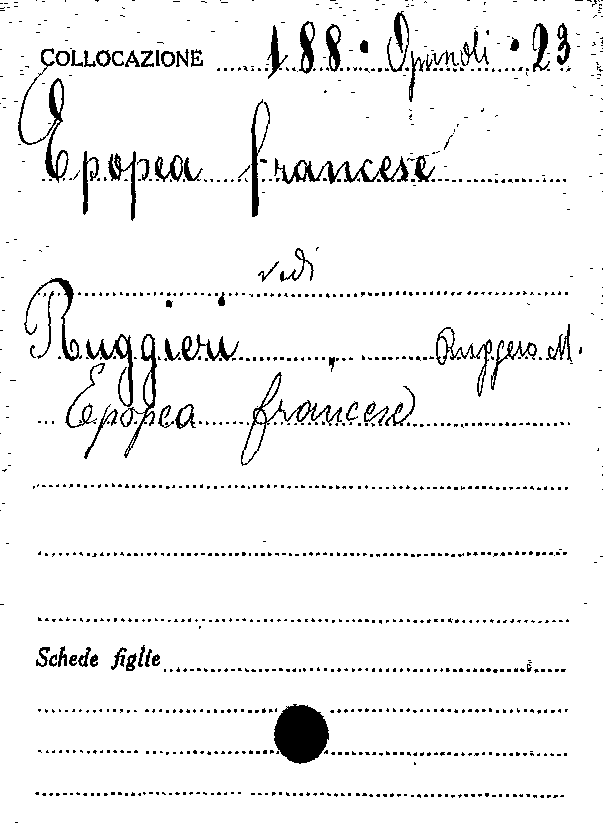 COLLOCAZIONE 188 • Opuscoli • 23
Epopea francese
vedi
Ruggieri Ruggero M.
Epopea francese
Schede figlie